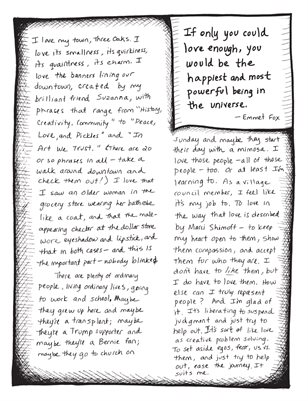 I love my town, Three Oaks. I
love its smallness, its quirkiness,
its quaintness, its charm. I
love the banners lining our
downtown, created by my
brilliant friend Suzanna, with
phrases that range from "History,
Creativity, Community" to "Peace,
Love, and Pickles" and "In
Art We Trust." (There are 20
or so phrases in all – take a
walk around downtown and
check them out!) I love that
I saw an older woman in the
grocery store wearing her bathrobe
like a coat, and that the male-
appearing checker at the dollar store
wore eyeshadow and lipstick, and
that in both cases – and this is
the important part – nobody blinked.
There are plenty of ordinary
people, living ordinary lives, going
to work and school. Maybe
they grew up here and maybe
they're a transplant; maybe
they're a Trump supporter and
maybe they're a Bernie fan;
maybe they go to church on
If only you could
love enough, you
would be the
happiest and most
powerful being in
the universe.
— Emmet Fox
Sunday and maybe they start
their day with a mimosa. I
love those people – all of those
people – too. Or at least I'm
learning to. As a village
council member, I feel like
it's my job to. To love in
the way that love is described
by Marci Shimoff – to keep
my heart open to them, show
them compassion, and accept
them for who they are. I
don't have to like them, but
I do have to love them. How
else can I truly represent
people? And I'm glad of
it. It's liberating to suspend
judgment and just try to
help out. It's sort of like love
as creative problem solving.
To set aside egos, fear, us v.
them, and just try to help
out, ease the journey. It
suits me.